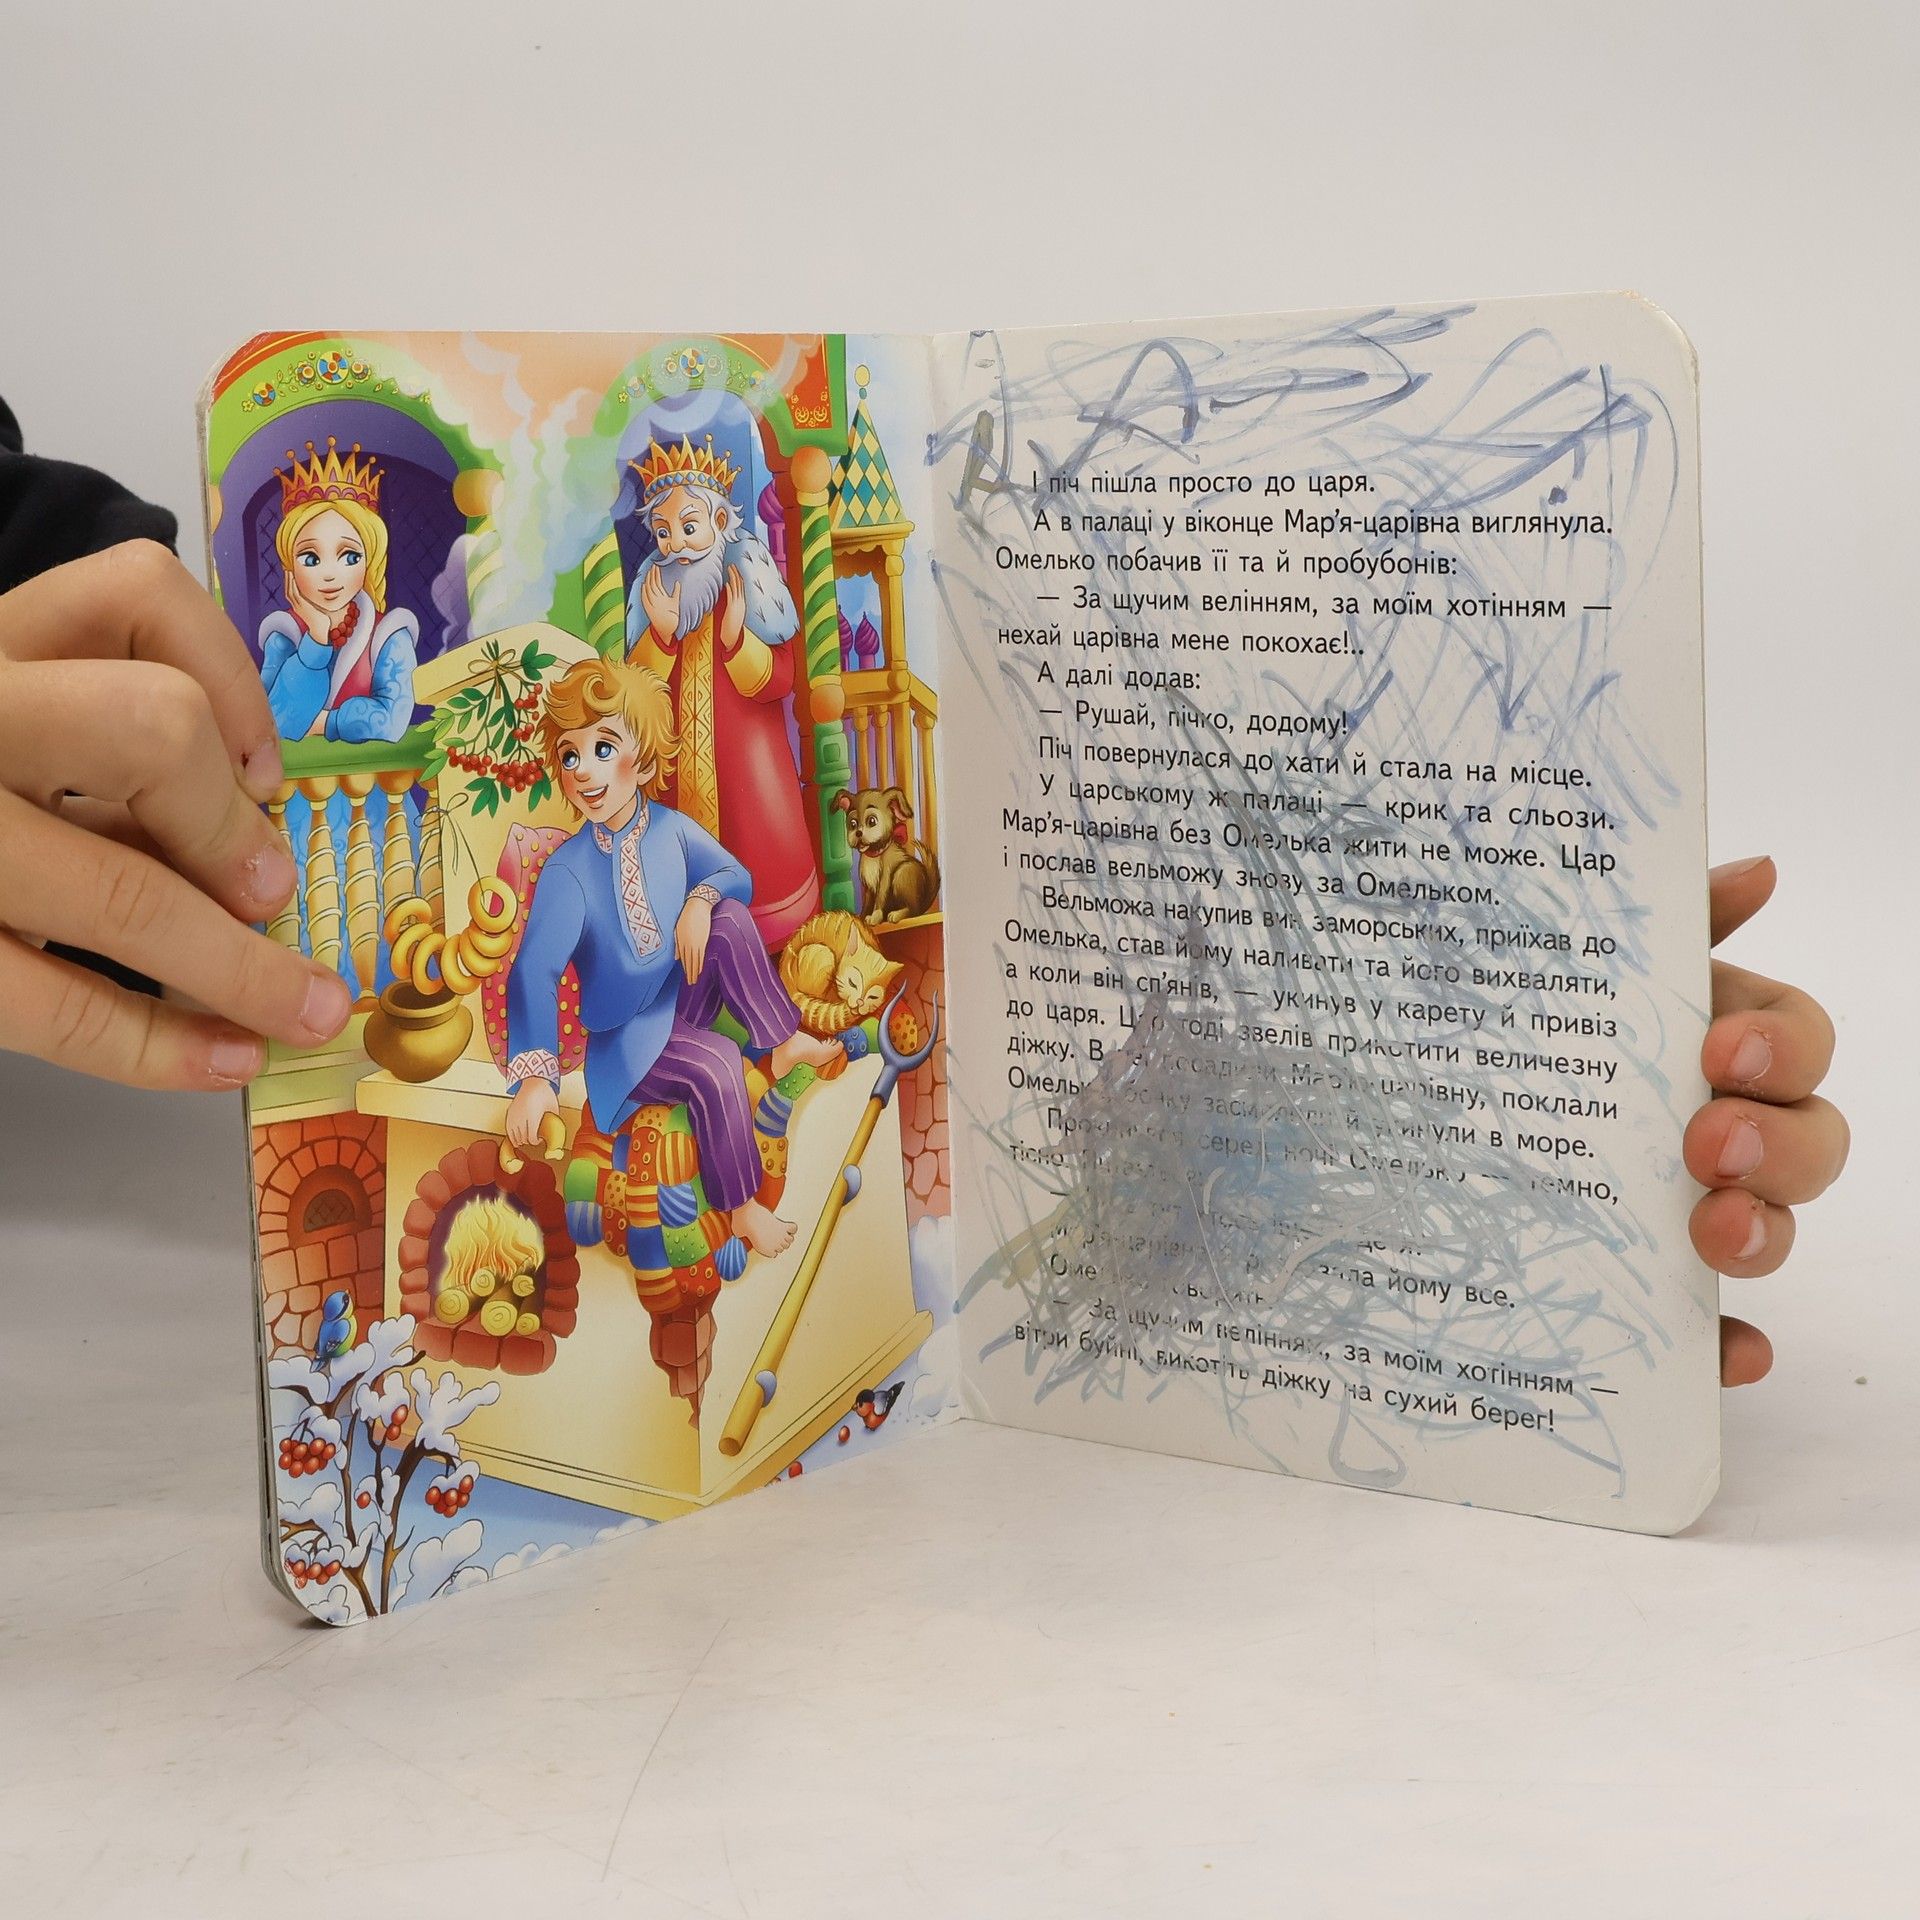 І піч пішла просто до царя.
А в палаці у віконце Мар’я-царівна виглянула.
Омелько побачив її та й пробубонів:
— За щучим велінням, за моїм хотінням —
нехай царівна мене покохає!..
А далі додав:
— Рушай, пічко, додому!
Піч повернулася до хати й стала на місце.
У царському ж палаці — крик та сльози.
Мар’я-царівна без Омелька жити не може. Цар
і послав вельможу знову за Омельком.
Вельможа накупив вин заморських, приїхав до
Омелька, став йому наливати та його вихваляти,
а коли він сп’янів, — укинув у карету й привіз
до царя. Цар тоді звелів прикотити величезну
діжку. В неї посадили Мар’ю-царівну, поклали
бочку засмолили й укинули в море.
серед ночі Омелько — темно,
тісно.
йому все.
— За щучим велінням, за моїм хотінням —
вітри буйні, викотіть діжку на сухий берег!